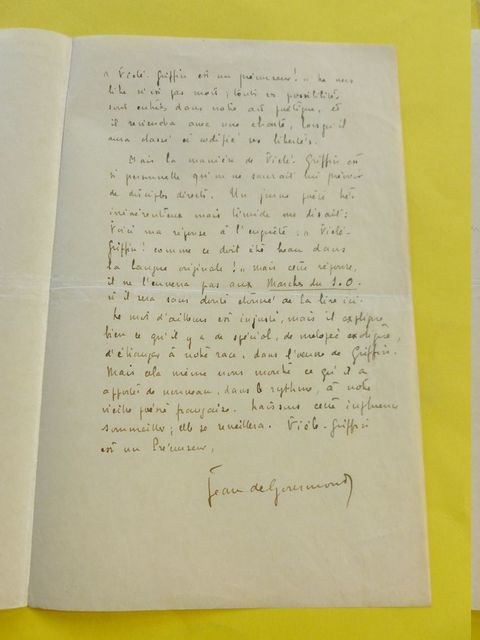 « Vielé-Griffin est un précurseur ! » Le vers
libre n'est pas mort ; toutes ses possibilités
sont entrées dans notre art poétique, et
il reviendra avec une charte, lorsqu'il
aura classé et codifié ses libertés.
Mais la manière de Vielé-Griffin est
si personnelle qu'on ne saurait lui prévoir
de disciples directs. Un jeune poète très
irrévérentieux mais timide me disait :
Voici ma réponse à l'enquête : « Vielé-
Griffin ! comme ce doit être beau dans
la langue originale ! » Mais cette réponse,
il ne l'enverra pas aux Marches du S.O.
et il sera sans doute étonné de la lire ici.
Le mot d'ailleurs est injuste, mais il explique
bien ce qu'il y a de spécial, de mélopée exotique,
d'étranger à notre race, dans l'œuvre de Griffin.
Mais cela même nous montre ce qu'il a
apporté de nouveau, dans le rythme, à notre
vieille poésie française. Laissons cette influence
sommeiller ; elle se réveillera. Vielé-Griffin
est un Précurseur,
Jean de Gourmont